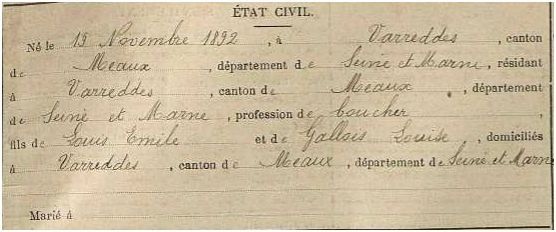 ÉTAT CIVIL.
Né le 15 Novembre 1892, à Varreddes, canton
de Meaux, département de Seine et Marne, résidant
à Varreddes, canton de Meaux, département
de Seine et Marne, profession de boucher,
fils de Louis Emile et de Gallois Louise, domiciliés
à Varreddes, canton de Meaux, département de Seine et Marne
Marié à